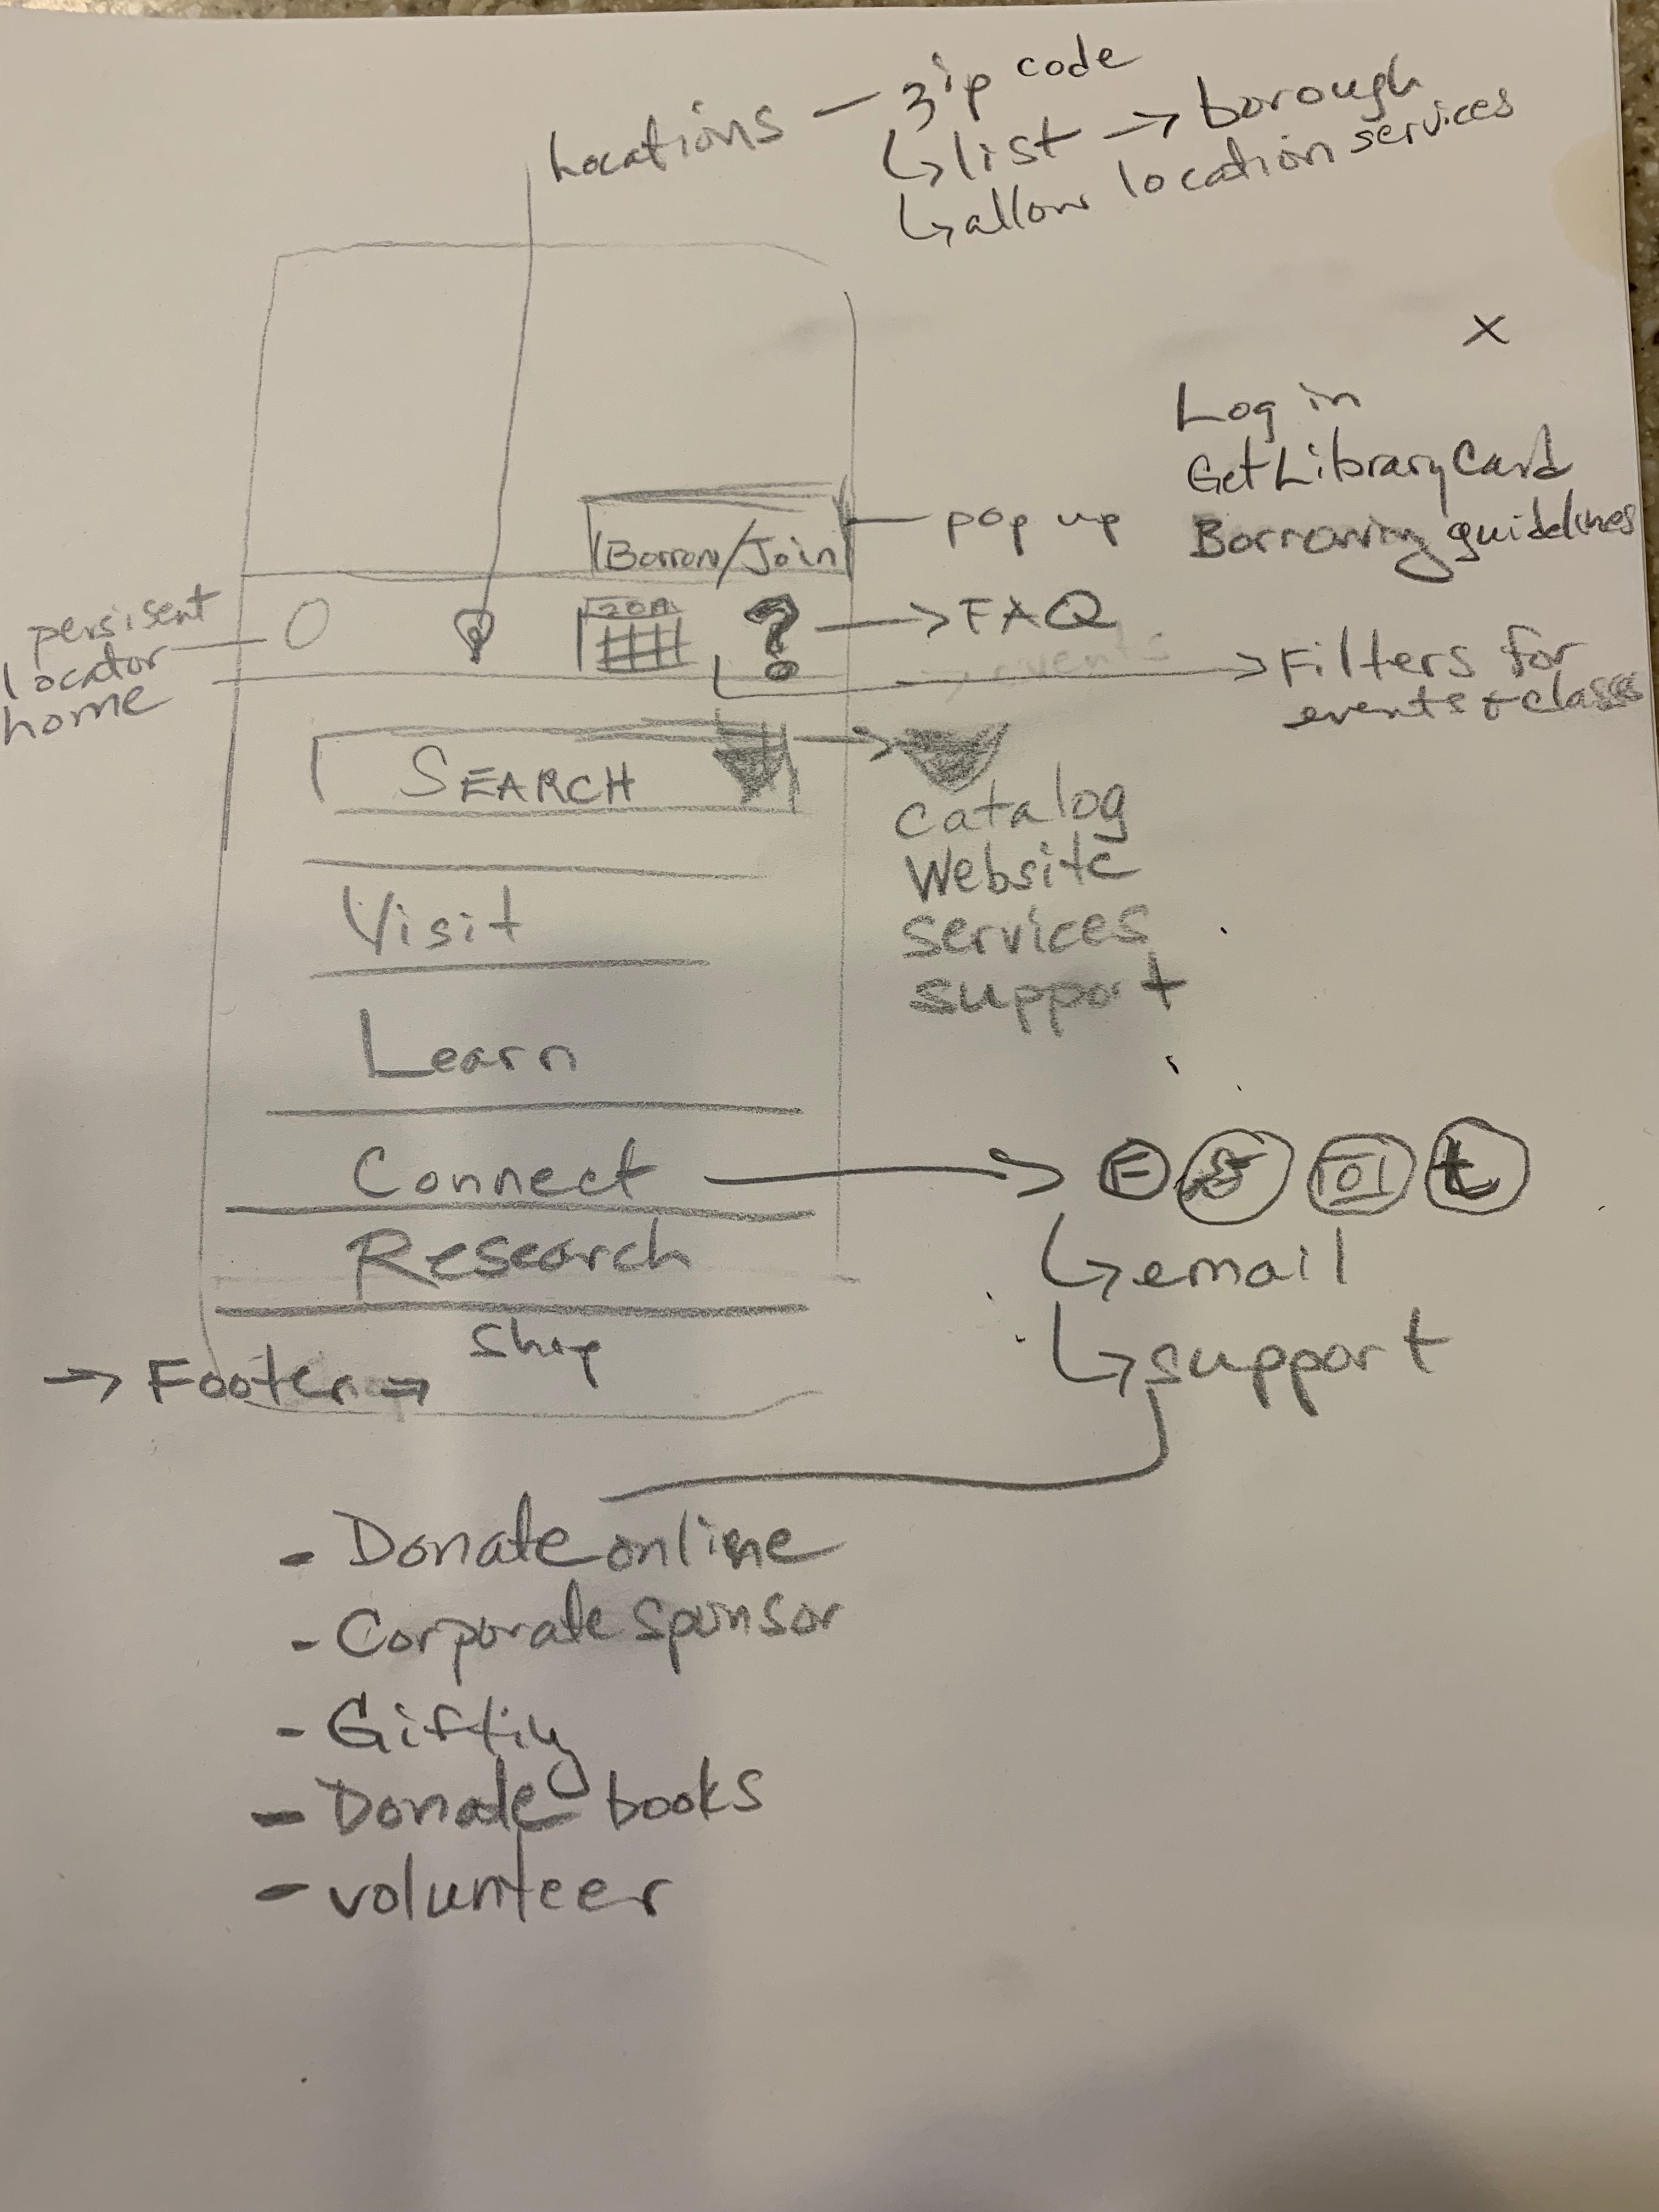 Locations — zip code
↳ list → borough
↳ allow location services
X
Log in
Get Library Card
Borrowing guidelines
pop up
Borrow/Join
persisent
locator
home
? → FAQ
→ events
→ Filters for
events + classes
SEARCH
catalog
Website
services
support
Visit
Learn
Connect → F t
↳ email
↳ support
Research
Shop
→ Footer →
- Donate online
- Corporate sponsor
- Giftiy
- Donate books
- volunteer